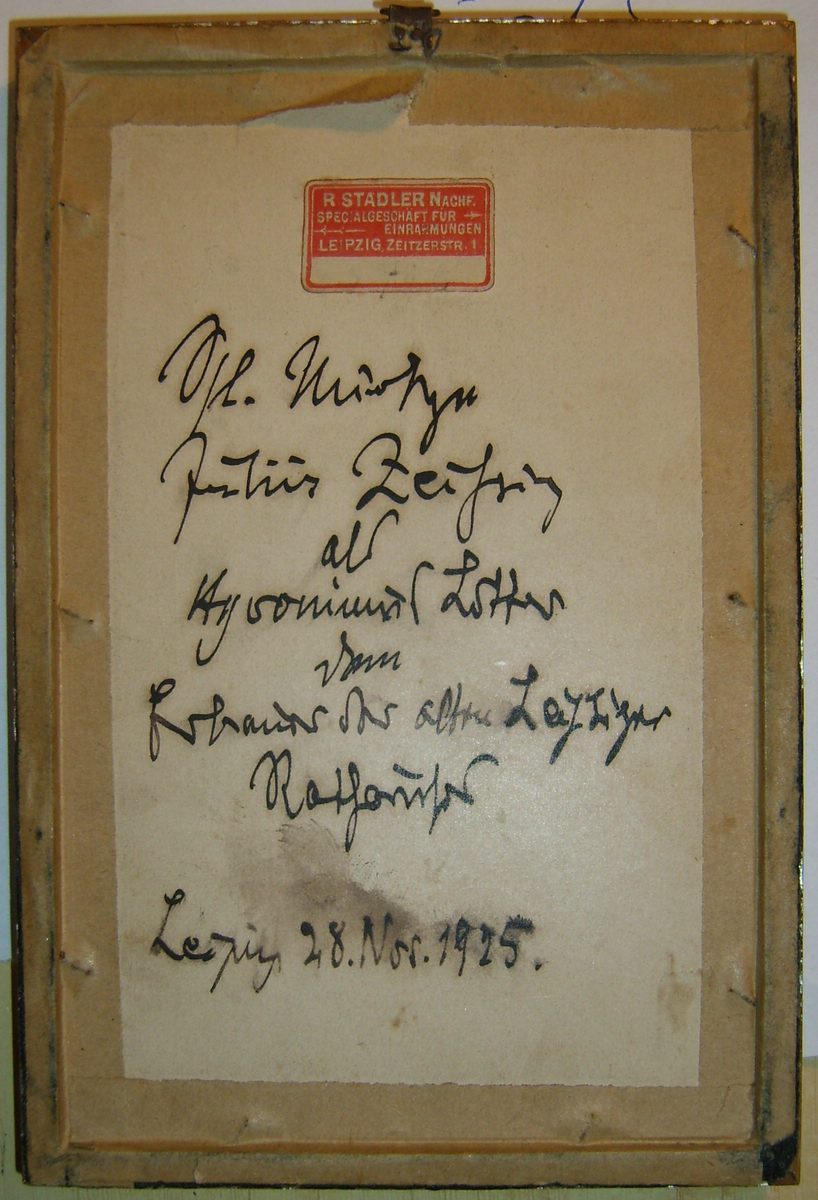 R STADLER NACHF.
SPECIALGESCHÄFT FÜR
EINRAHMUNGEN
LEIPZIG, ZEITZERSTR. 1
Julius
als
Hyronimus Lotter
dem
Erbauer des alten Leipziger
Rathauses
Leipzig 28. Nov. 1925.